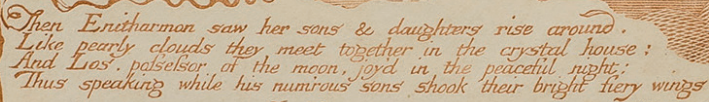 Then Enitharmon saw her sons & daughters rise around.
Like pearly clouds they meet together in the crystal house:
And Los, possessor of the moon, joy'd in the peaceful night:
Thus speaking while his num'rous sons shook their bright fiery wings